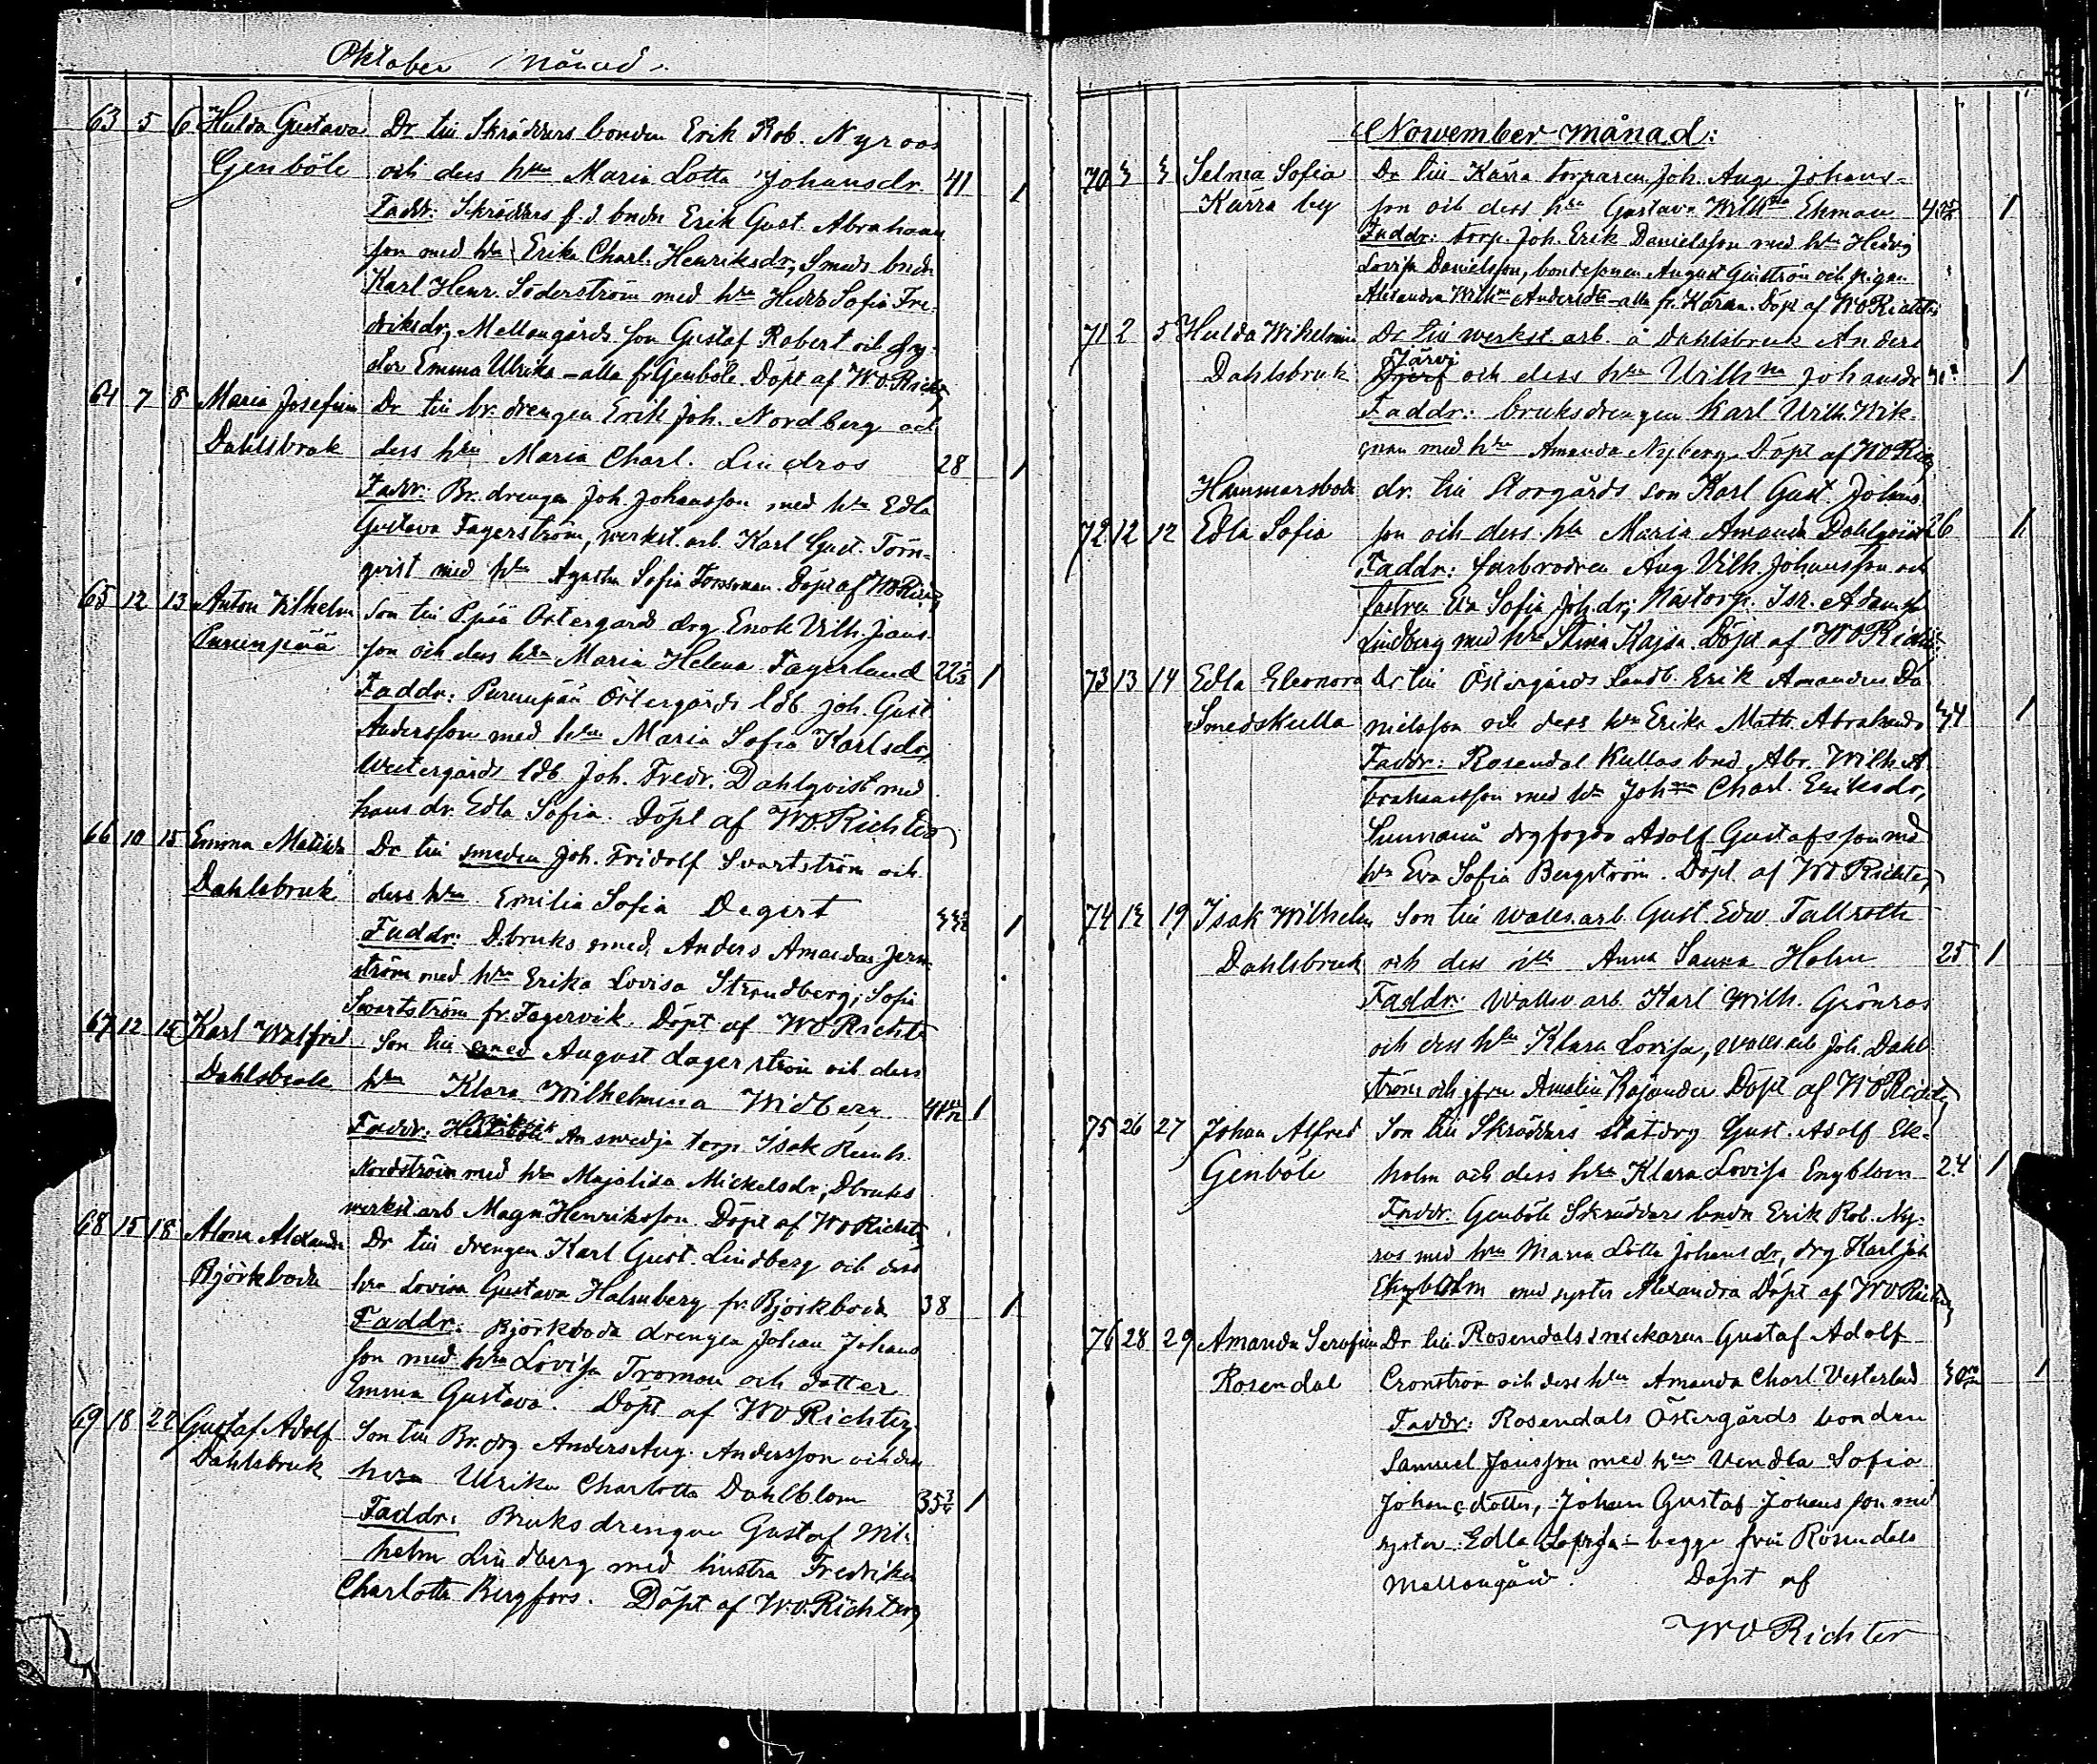 Oktober månad.
63 5 6 Hulda Gustava Dr till Skräddars bonden Erik Rob. Nyroos
Genböle och dess hu Maria Lotta Johansdr 41 1
Faddr: Skräddars f.d. bndn Erik Gust. Abrahams
son med hu Erika Charl. Henriksdr, Smeds bndn
Karl Henr. Söderström med hu Hedda Sofia Fre-
driksdr, Mellangårds son Gustaf Robert och
Emma Ulrika – alla fr Genböle. Döpt af W.O. Richter
64 7 8 Maria Josefina Dr till br. drengen Erik Joh. Nordberg och
Dahlsbruk dess hu Maria Charl. Lindros 28 1
Faddr: Br. drengen Joh. Johansson med hu Edla
Gustava Fagerström, werkst. arb. Karl Gust. Törn-
qvist med hu Agatha Sofia Forssman. Döpt af WO Richter
65 12 13 Anton Vilhelm Son till Ppää Östergård drg Enok Vilh. Jans
Purunpää son och dess hu Maria Helena Fagerlund 22½ 1
Faddr: Purunpää Östergårds ldb Joh. Gust
Andersson med hu Maria Sofia Karlsdr,
Westergårds ldb Joh. Fredr. Dahlqvist med
hans dr. Edla Sofia. Döpt af WO. Richter
66 10 15 Emma Matilda Dr till smeden Joh. Fridolf Svartström och
Dahlsbruk dess hu Emilia Sofia Degert 1
Faddr: D.bruks smed. Anders Amandus Jern-
ström med hu Erika Lovisa Strandberg; Sofia
Svartström fr. Fagervik. Döpt af WO Richter
67 12 15 Karl Walfrid Son till smed August Lagerström och dess
Dahlsbruk hu Klara Wilhelmina Widberg 1
Faddr: smedja torp Isak Reinh.
Nordström med hu Majalisa Mickelsdr, Dbruks
werkst. arb Magn Henriksson. Döpt af WO Richter
68 15 18 Alma Alexandra Dr till drengen Karl Gust. Lindberg och dess
Björkboda hu Lovisa Gustava Holmberg fr. Björkboda 38 1
Faddr: Björkboda drengen Johan Johans
son med hu Lovisa Troman och dotter
Emma Gustava. Döpt af WO Richter.
69 18 22 Gustaf Adolf Son till Br. drg. Anders Aug. Andersson och dess
Dahlsbruk hu Ulrika Charlotta Dahlblom 35¾ 1
Faddr: Bruksdrengen Gustaf Wil-
helm Lindberg med hustru Fredrika
Charlotta Bergfors. Döpt af W.O. Richter
November månad:
70 3 3 Selma Sofia Dr till Kärra torparen Joh. Aug. Johans-
Kärra by son och dess hu Gustava Wilhna Ekman 1
Faddr: torp. Joh. Erik Danielsson med hu Hedvig
Lovisa Danielsson, bondesonen August och pigan
Alexandra Wilhna Andersdr – alla fr. Kärra. Döpt af WO Richter
71 2 5 Hulda Wilhelmina Dr till werkst. arb. å Dahlsbruk Anders
Järvi
Dahlsbruk och dess hu Wilhna Johansdr 1
Faddr: bruksdrengen Karl Wilh. Wik-
man med hu Amanda Nyberg. Döpt af WO Richter
Hammarsboda dr. till Storgårds son Karl Gust. Johans
72 12 12 Edla Sofia son och dess hu Maria Amanda Dahlqvist 26 1
Faddr: farbrodren Aug. Vilh. Johansson och
fastren Eva Sofia Joh.dr; Isr. Adamss
Lindberg med hu Stina Kajsa. Döpt af WO Richter
73 13 14 Edla Eleonora Dr till Östergårds landb. Erik Amandus Da
Smedskulla nielsson och dess hu Erika Math. Abrahamsdr 1
Faddr: Rosendal Kullas bnd Abr. Wilh. A
brahamsson med hu Johna Charl. Eriksdr,
Sunnanå drgfogdn Adolf Gustafsson med
hu Eva Sofia Bergström. Döpt af WO Richter
74 19 Isak Wilhelm Son till wallsv. arb. Gust. Edw. Tallroth
Dahlsbruk och dess hu Anna Sanna Holm 25 1
Faddr: Wallsv. arb. Karl Wilh. Grönroos
och dess hu Klara Lovisa, wallsv. arb Joh. Dahl
ström och jfru Amalia Kajander. Döpt af WO Richter
75 26 27 Johan Alfred Son till Skräddars statdrg Gust. Adolf Ek-
Genböle holm och dess hu Klara Lovisa Engblom 24 1
Faddr. Genböle Skräddars bndn Erik Rob. Ny-
ros med hu Maria Lotta Johansdr, drg Karl Joh
Engblom med syster Alexandra. Döpt af WO Richter
76 28 29 Amanda Serafina Dr till Rosendals snickaren Gustaf Adolf
Rosendal Cronström och dess hu Amanda Charl. Vesterlund 1
Faddr: Rosendals Östergårds bonden
Samuel Jansson med hu Vendla Sofia
Johansdotter, Johan Gustaf Johansson med
syster Edla – begge från Rosendals
Mellangård. Döpt af
WO Richter